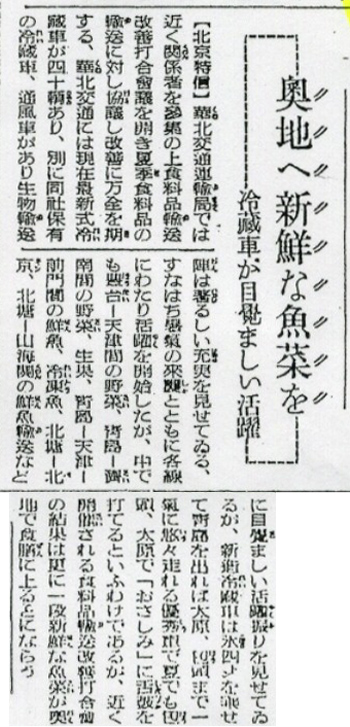 奧地へ新鮮な魚菜を
冷藏車が目覺ましい活躍
【北京特信】華北交通運輸局では
近く關係者を參集の上食料品輸送
改善打合會議を開き夏季食料品の
輸送に対し協議し改善に万全を期
する、華北交通には現在最新式冷
藏車が四十輛あり、別に同社保有
の冷藏車、通風車があり生物輸送
陣は著るしい充実を見せてゐる、
すなはち暑氣の來襲とともに各線
にわたり活躍を開始したが、中で
も豊台―天津間の野菜、靑島―濟
南間の野菜、生果、靑島―天津―
前門間の鮮魚、冷凍魚、北塘―北
京、北塘―山海關の鮮魚輸送など
に目覺ましい活躍振りを見せてゐ
るが、新造冷藏車は氷四トを乘せ
て靑島を出れば太原、包頭まで一
氣に悠々走れる優秀車で夏でも包
頭、太原で「おさしみ」に舌皷を
打てるといふわけであるが、近く
開催される食料品輸送改善打合會
の結果は更に一段新鮮な魚菜が奧
地で食膳に上ることにならう